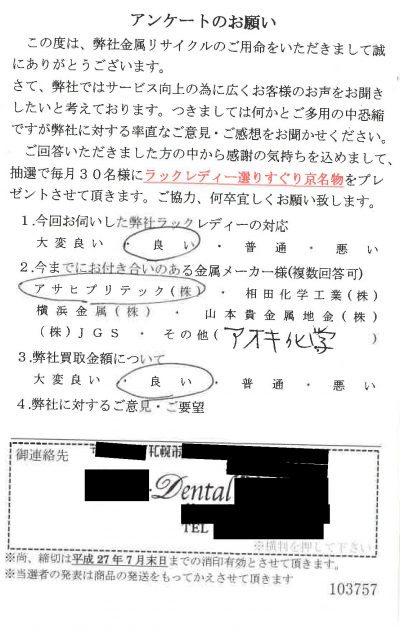 アンケートのお願い
この度は、弊社金属リサイクルのご用命をいただきまして誠
にありがとうございます。
さて、弊社ではサービス向上の為に広くお客様のお声をお聞き
したいと考えております。つきましては何かとご多用の中恐縮
ですが弊社に対する率直なご意見・ご感想をお聞かせください。
ご回答いただきました方の中から感謝の気持ちを込めまして、
抽選で毎月30名様にラックレディー選りすぐり京名物をプレ
ゼントさせて頂きます。ご協力、何卒宜しくお願い致します。
1.今回お伺いした弊社ラックレディーの対応
大変良い ・ 良い ・ 普通 ・ 悪い
2.今までにお付き合いのある金属メーカー様(複数回答可)
アサヒプリテック(株) ・ 相田化学工業(株)
横浜金属(株) ・ 山本貴金属地金(株)
(株)JGS ・ その他(アオキ化学)
3.弊社買取金額について
大変良い ・ 良い ・ 普通 ・ 悪い
4.弊社に対するご意見・ご要望
御連絡先
〒 札幌市
Dental
TEL
※横判を押して下さい
※尚、締切は平成27年7月末日までの消印有効とさせて頂きます。
※当選者の発表は商品の発送をもってかえさせて頂きます
103757